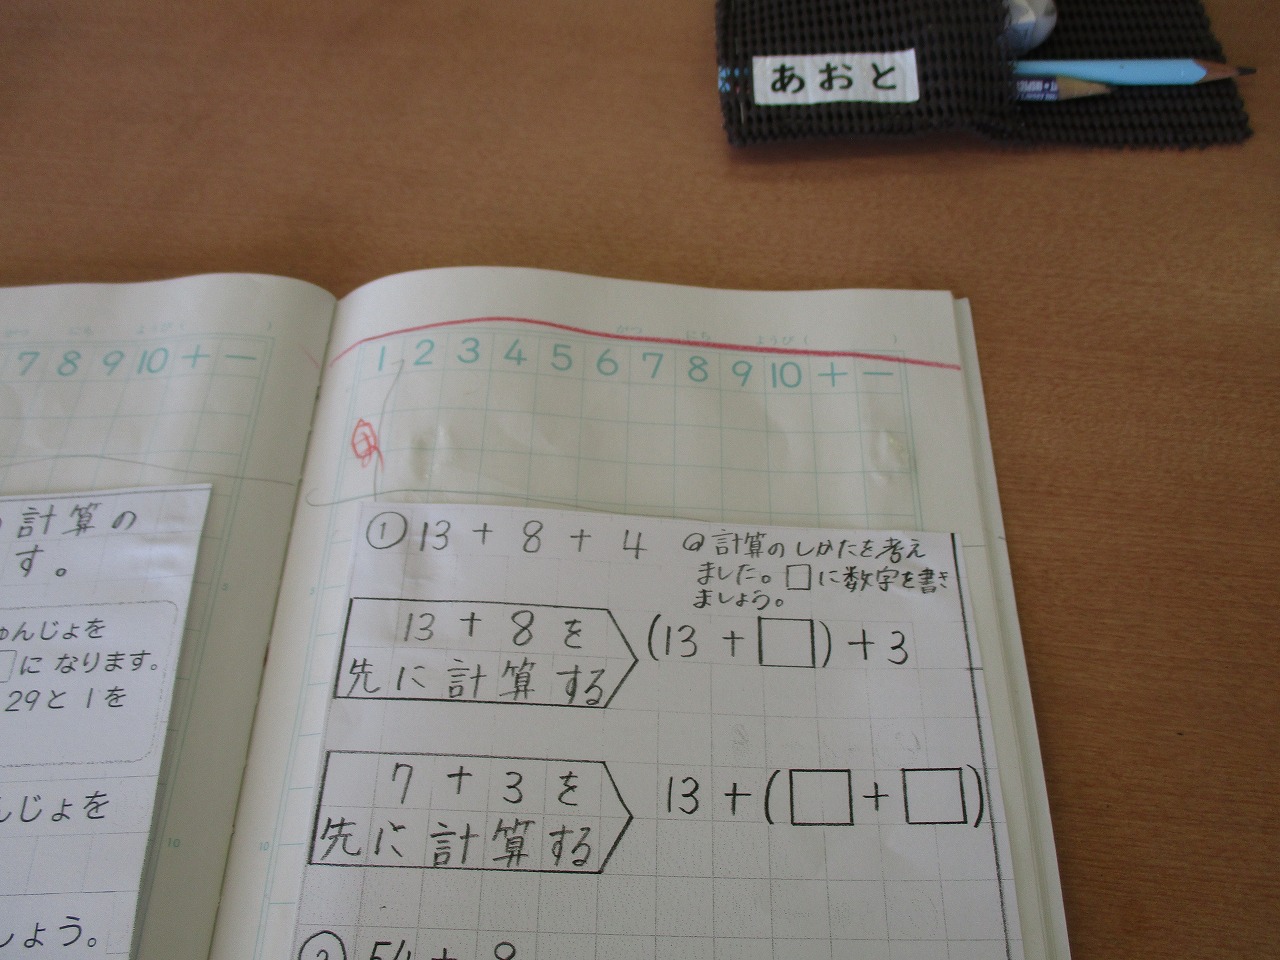 あおと
7 8 9 10 + −
がつ にち ようび( )
1 2 3 4 5 6 7 8 9 10 + −
計算の
す。
ゅんじょを
□になります。
29と1を
んじょを
しょう。
10
10
① 13 + 8 + 4
@計算のしかたを考え
ました。□に数字を書き
ましょう。
13 + 8 を
先に計算する
(13 + □) + 3
7 + 3 を
先に計算する
13 + (□ + □)
② 54 + 8